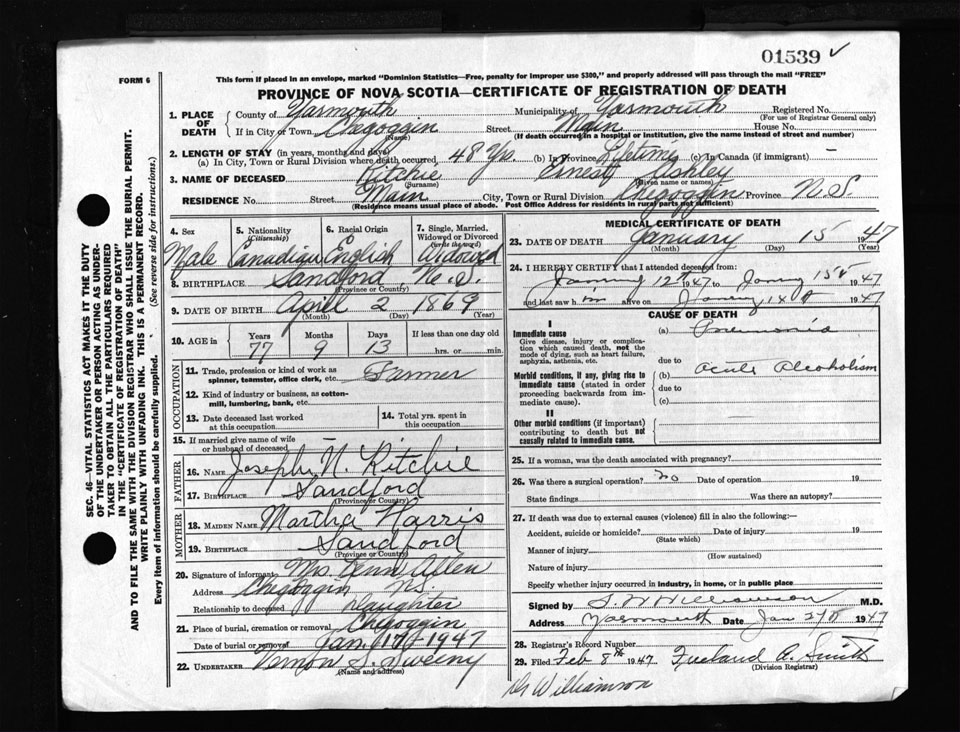 01539 ✓
FORM 6
This form if placed in an envelope, marked "Dominion Statistics—Free, penalty for improper use $300," and properly addressed will pass through the mail "FREE"
PROVINCE OF NOVA SCOTIA—CERTIFICATE OF REGISTRATION OF DEATH
1. PLACE OF DEATH
County of Yarmouth Municipality of Yarmouth Registered No.
(For use of Registrar General only)
If in City or Town Chegoggin Street Main House No.
(Name) (If death occurred in a hospital or institution, give the name instead of street and number)
2. LENGTH OF STAY (in years, months and days)
(a) In City, Town or Rural Division where death occurred 48 Yrs. (b) In Province Lifetime (c) In Canada (if immigrant) —
3. NAME OF DECEASED Ritchie Ernest Ashley
(Surname) (Given name or names)
RESIDENCE No. Street Main City, Town or Rural Division Chegoggin Province N.S.
(Residence means usual place of abode. Post Office Address for residents in rural parts not sufficient)
4. Sex 5. Nationality (Citizenship) 6. Racial Origin 7. Single, Married, Widowed or Divorced (write the word)
Male Canadian English Widowed
8. BIRTHPLACE Sandford N.S.
(Province or Country)
9. DATE OF BIRTH April 2 1869
(Month) (Day) (Year)
10. AGE in Years Months Days If less than one day old
77 9 13 hrs. or min.
OCCUPATION
11. Trade, profession or kind of work as spinner, teamster, office clerk, etc. Farmer
12. Kind of industry or business, as cotton-mill, lumbering, bank, etc.
13. Date deceased last worked at this occupation
14. Total yrs. spent in this occupation
15. If married give name of wife or husband of deceased —
FATHER
16. NAME Joseph N. Ritchie
17. BIRTHPLACE Sandford
(Province or Country)
MOTHER
18. MAIDEN NAME Martha Harris
19. BIRTHPLACE Sandford
(Province or Country)
20. Signature of informant Mrs. Allen
Address Chegoggin N.S.
Relationship to deceased Daughter
21. Place of burial, cremation or removal Chegoggin
Date of burial or removal Jan. 17th 1947
22. UNDERTAKER Vernon S. Sweeny
(Name and address)
MEDICAL CERTIFICATE OF DEATH
23. DATE OF DEATH January 15 1947
(Month) (Day) (Year)
24. I HEREBY CERTIFY that I attended deceased from:
1947 to 1947
and last saw him alive on 1947
CAUSE OF DEATH
I
Immediate cause
Give disease, injury or complication which caused death, not the mode of dying, such as heart failure, asphyxia, asthenia, etc.
(a) Pneumonia
due to
Morbid conditions, if any, giving rise to immediate cause (stated in order proceeding backwards from immediate cause).
(b) Acute Alcoholism
due to
(c)
II
Other morbid conditions (if important) contributing to death but not causally related to immediate cause.
25. If a woman, was the death associated with pregnancy?
26. Was there a surgical operation? no Date of operation 19
State findings Was there an autopsy?
27. If death was due to external causes (violence) fill in also the following:—
Accident, suicide or homicide? Date of injury 19
(State which)
Manner of injury
(How sustained)
Nature of injury
Specify whether injury occurred in industry, in home, or in public place
Signed by S W Williamson M.D.
Address Yarmouth Date Jan 1947
28. Registrar's Record Number
29. Filed Feb 8th 1947 Freeland A. Smith
(Division Registrar)
Dr Williamson
SEC. 46—VITAL STATISTICS ACT MAKES IT THE DUTY
OF THE UNDERTAKER OR PERSON ACTING AS UNDER-
TAKER TO OBTAIN ALL THE PARTICULARS REQUIRED
IN THE "CERTIFICATE OF REGISTRATION OF DEATH"
AND TO FILE THE SAME WITH THE DIVISION REGISTRAR WHO SHALL ISSUE THE BURIAL PERMIT.
WRITE PLAINLY WITH UNFADING INK. THIS IS A PERMANENT RECORD.
Every item of information should be carefully supplied. (See reverse side for instructions.)